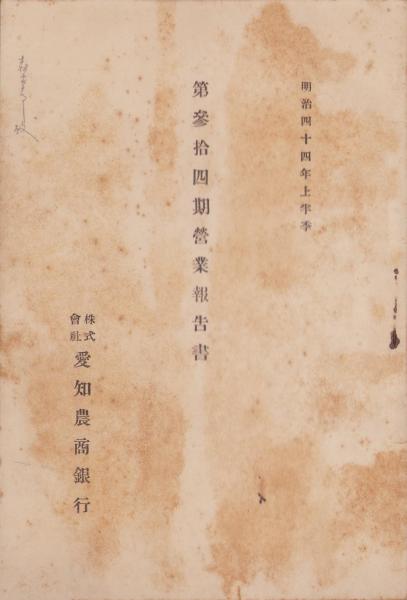 明治四十四年上半季
第參拾四期營業報告書
株式會社愛知農商銀行